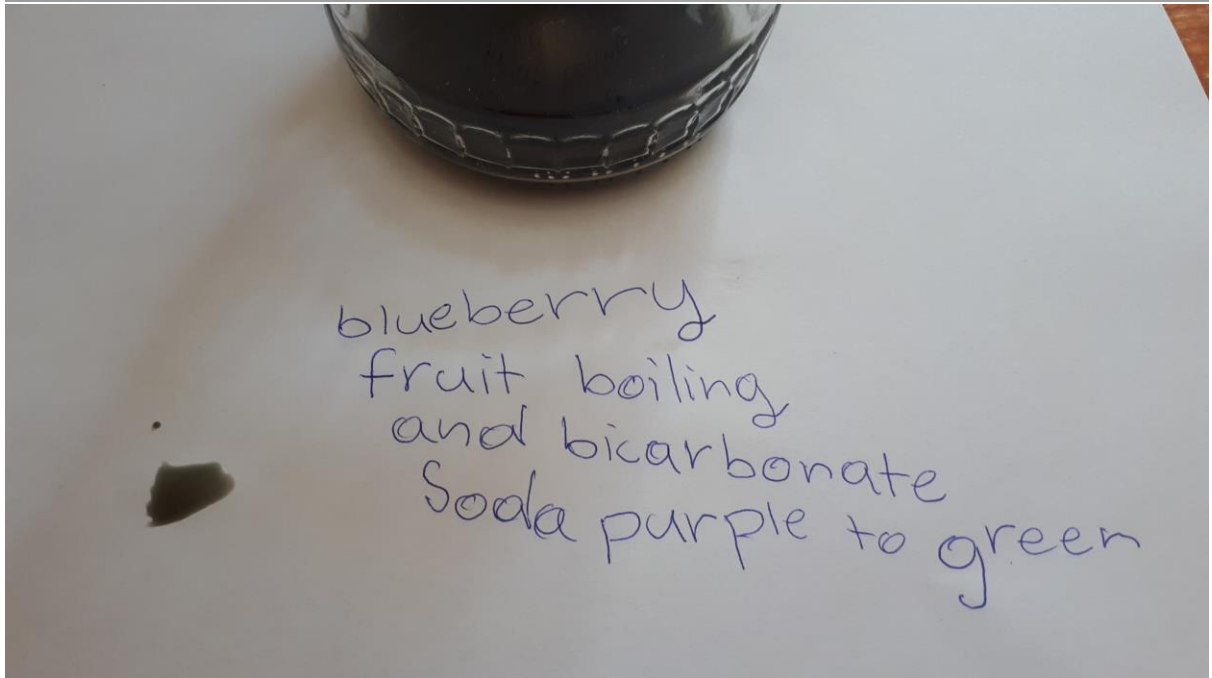 blueberry
fruit boiling
and bicarbonate
Soda purple to green